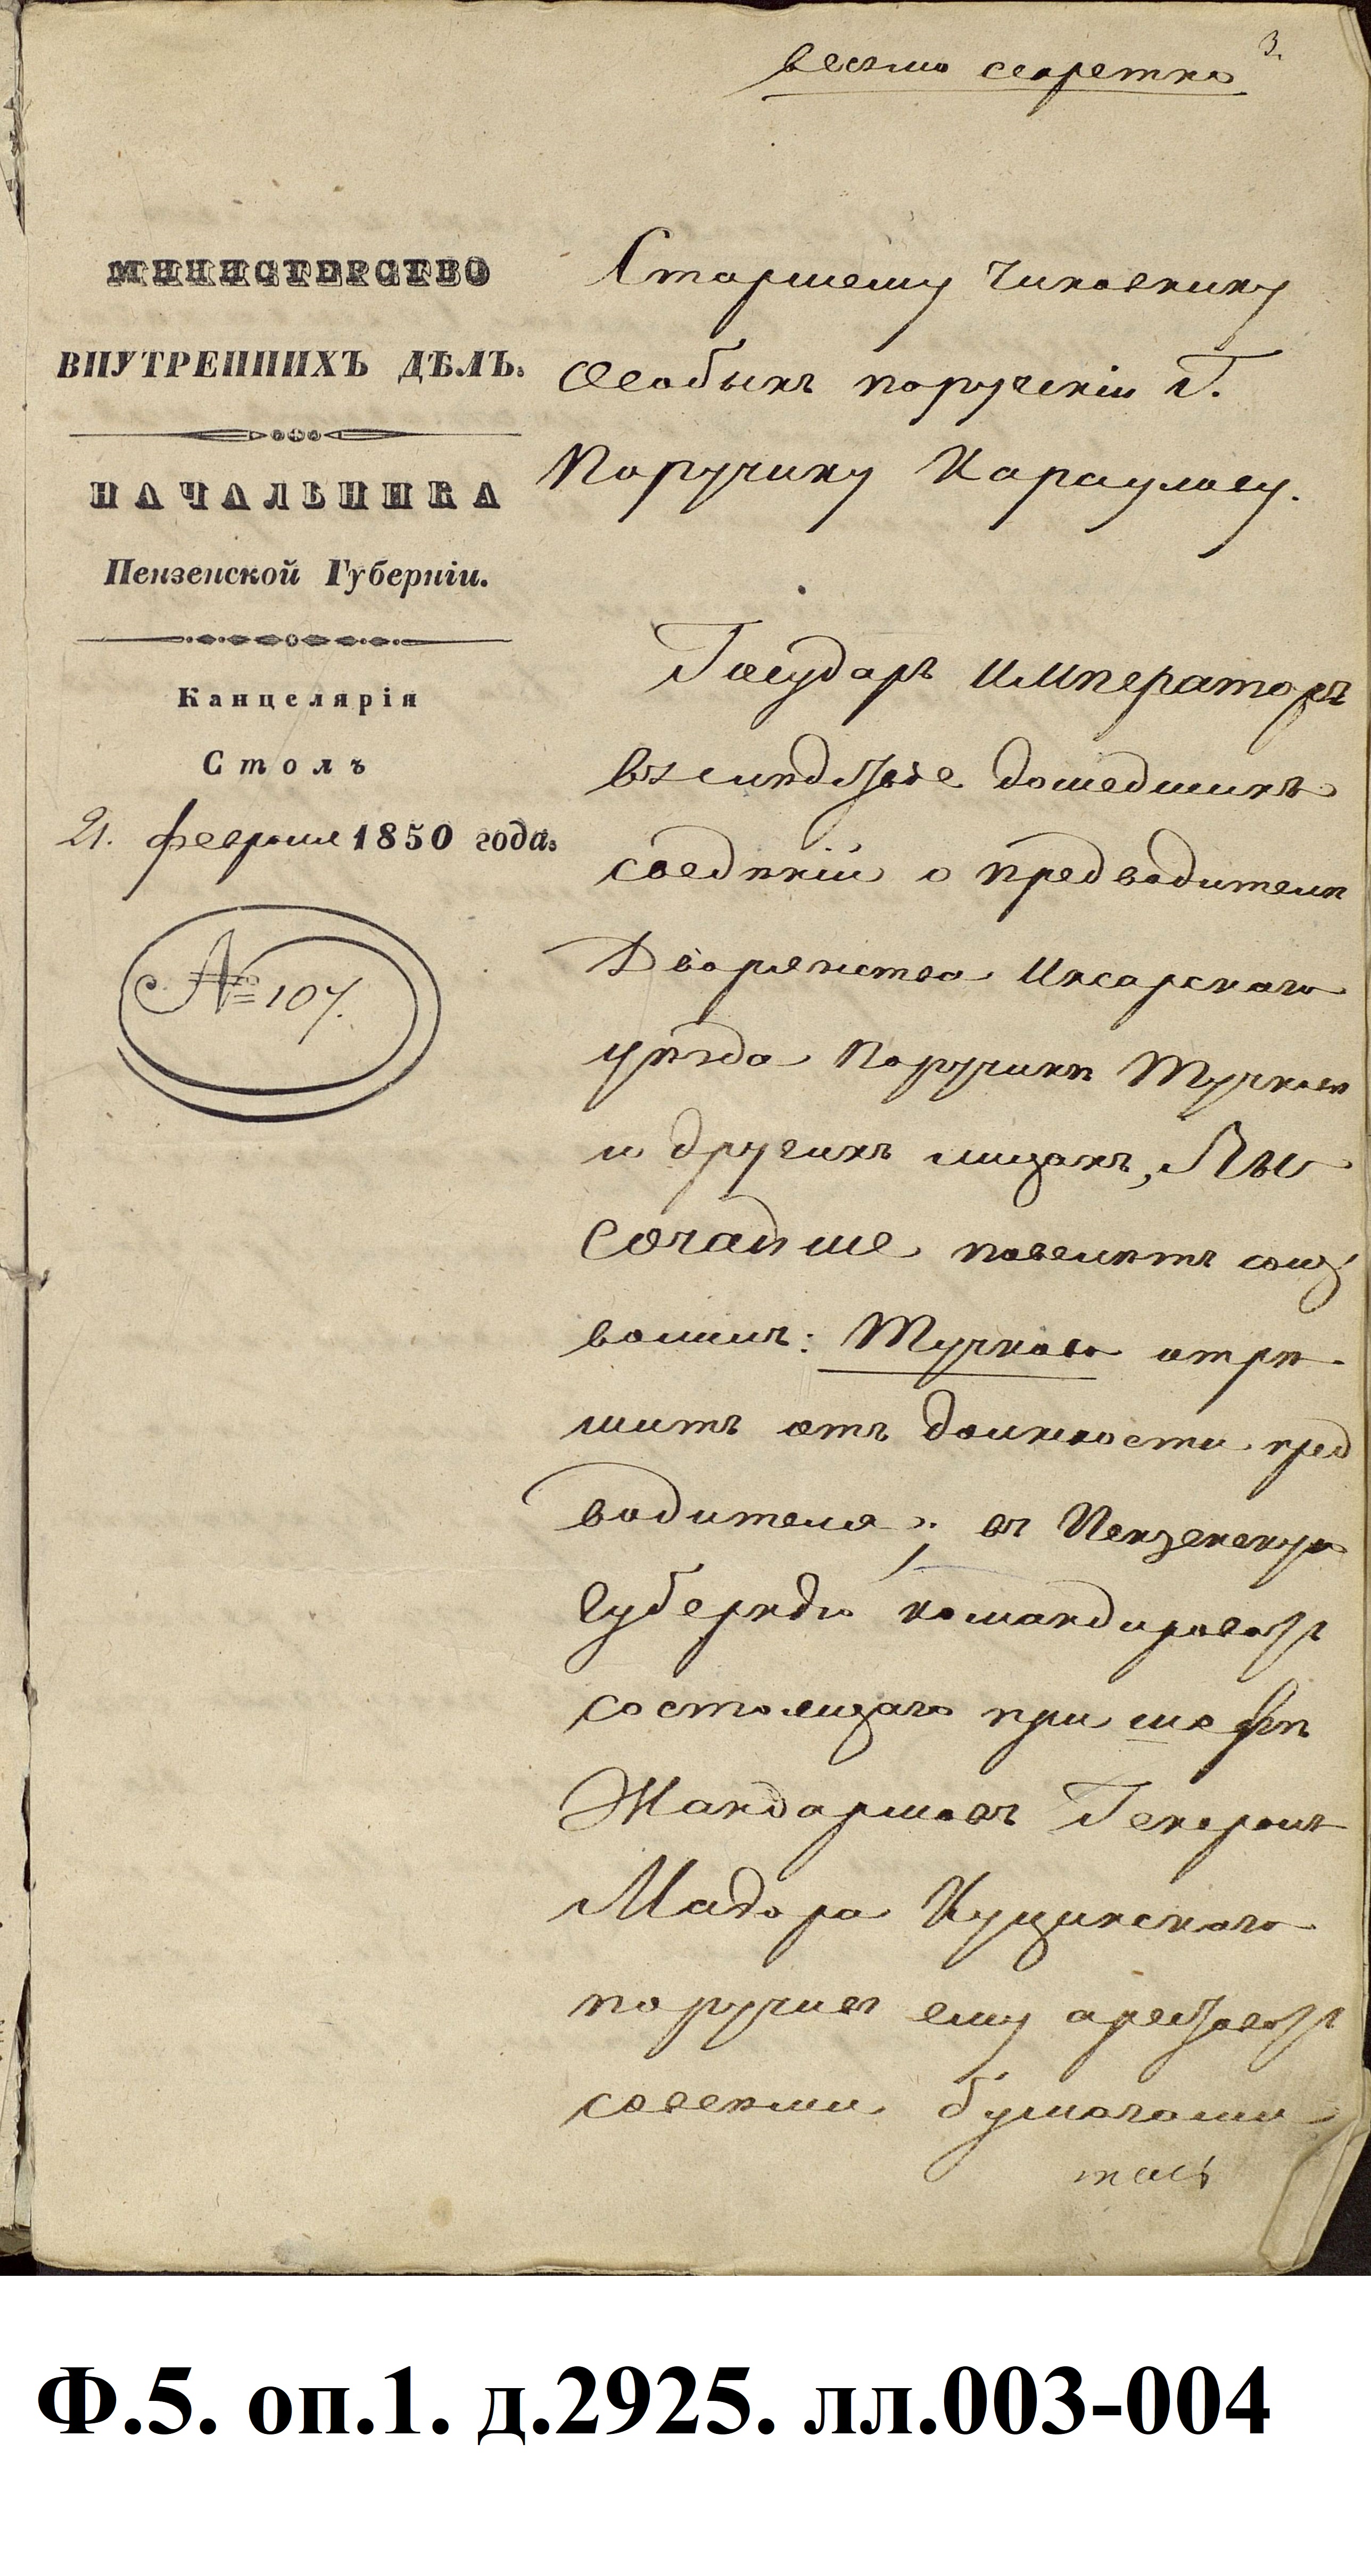 3.
весьма секретно
МИНИСТЕРСТВО
ВНУТРЕННИХЪ ДѢЛЪ.
НАЧАЛЬНИКА
Пензенской Губерніи.
Канцелярія
Столъ
21. февраля 1850 года.
№ 107.
Старшему Чиновнику
Особыхъ порученій Г.
Поручику Караулову.
Государь Императоръ
въ слѣдствіе дошедшихъ
сведѣній о предводителѣ
Дворянства Инсарскаго
уѣзда Поручикѣ Тучковѣ
и другихъ лицахъ, Вы
сочайше повелѣть соиз
волилъ: Тучкова отрѣ-
шить отъ должности пред
водителя; въ Пензенскую
Губернію командировать
состоящаго при шефѣ
Жандармовъ Генералъ
Маіора Куцинскаго
поручивъ ему арестовать
со всеми бумагами
Ф.5. оп.1. д.2925. лл.003-004